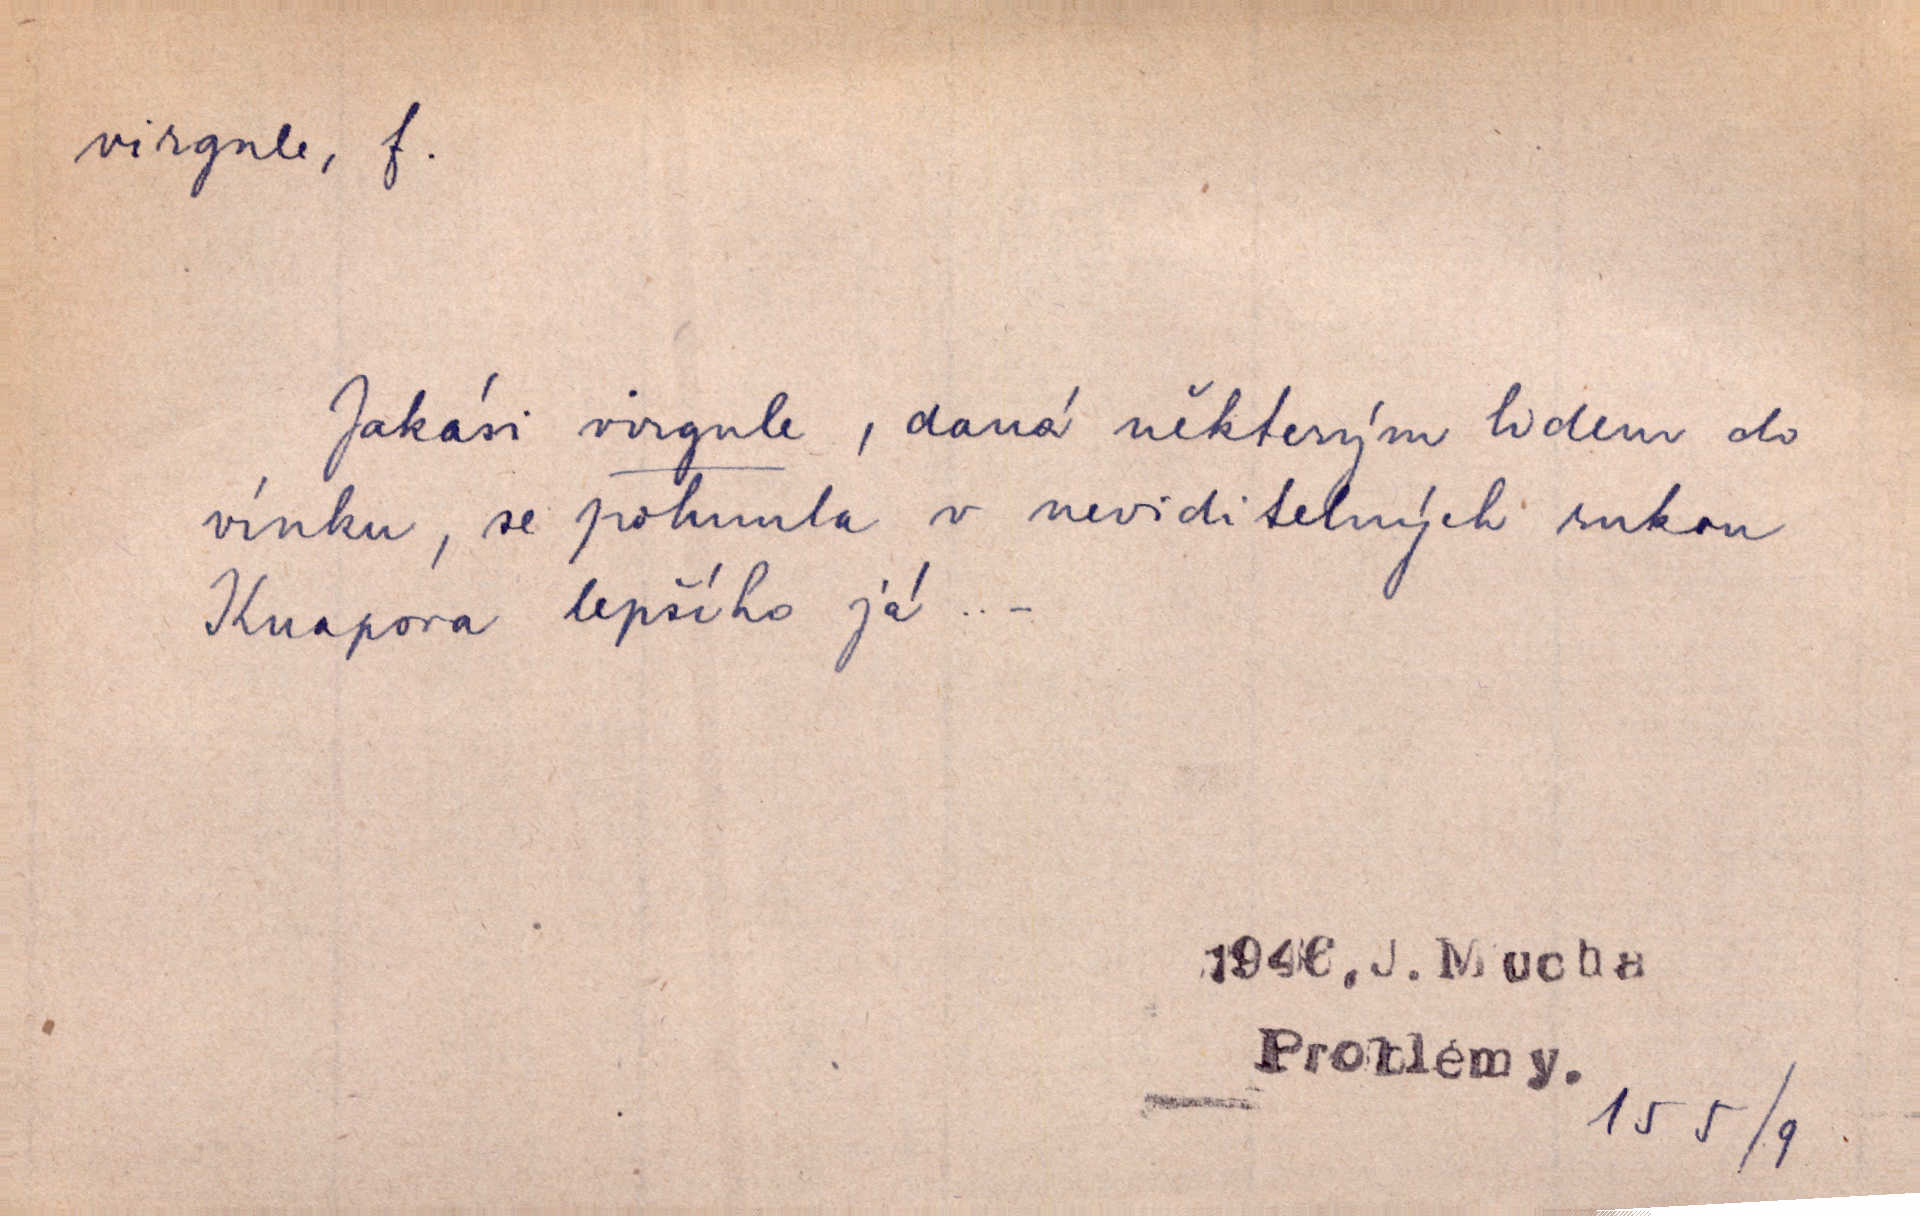 virgule, f.
Jakási virgule, daná některým lidem do
vínku, se pohnula v neviditelných rukou
Knapova lepšího já ..-
1946, J. Mucha
Problémy.
155/9